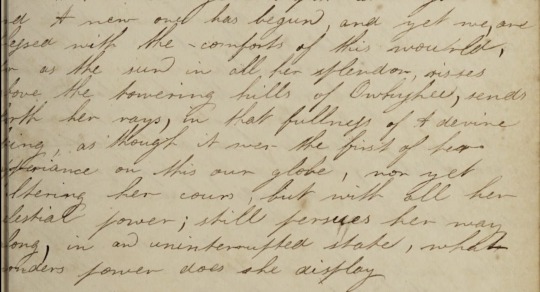 nd A new one has begun, and yet we are
lessed with the comforts of this wourld,
r as the sun in all her splendor, risses
bove the towering hills of Owhyhee, sends
orth her rays, in that fullness of A devine
eing, as though it wer the first of her
periance on this our globe, nor yet
ltering her cours, but with all her
lestial power; still persues her way
long, in an uninterrupted state, what
onders power does she display